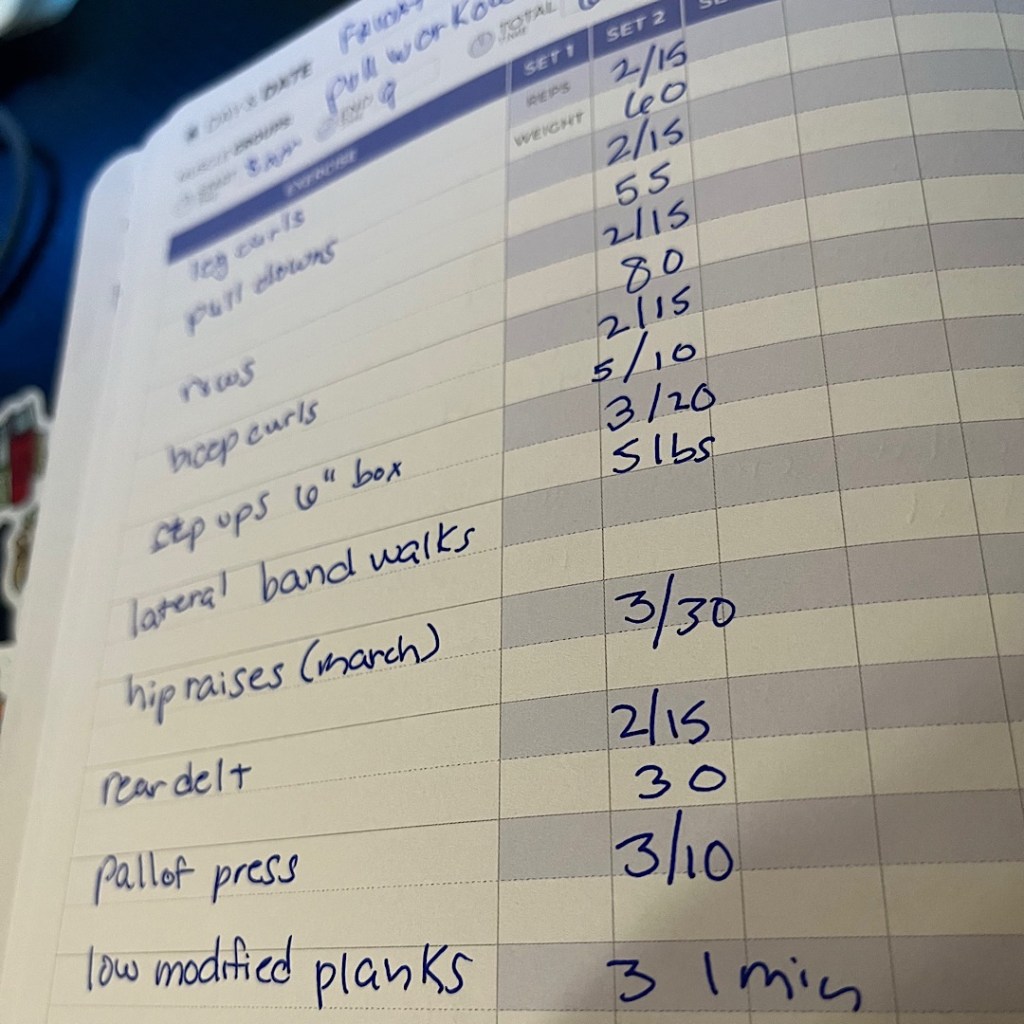 DAY & DATE
MUSCLE GROUPS
pull
TOTAL TIME
9
EXERCISE SET 1 SET 2
REPS
WEIGHT
leg curls 2/15
60
pull downs 2/15
55
rows 2/15
80
bicep curls 2/15
5/10
step ups 6" box 3/20
5 lbs
lateral band walks
hip raises (march) 3/30
rear delt 2/15
30
pallof press 3/10
low modified planks 3 1 min